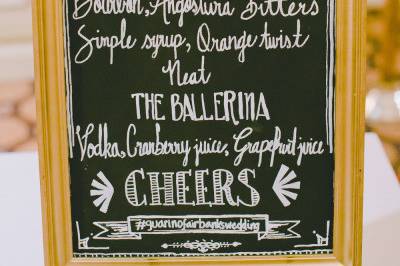 Bourbon, Angostura Bitters
Simple syrup, Orange twist
Neat
THE BALLERINA
Vodka, Cranberry juice, Grapefruit juice
CHEERS
#guarinofairbankswedding